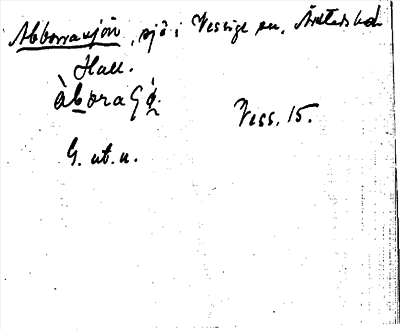 Abborrasjön, sjö i Vessige sn, Årstads hd
Hall.
àb̲oraɧǫ́.
Vess. 15.
G. ut. u.